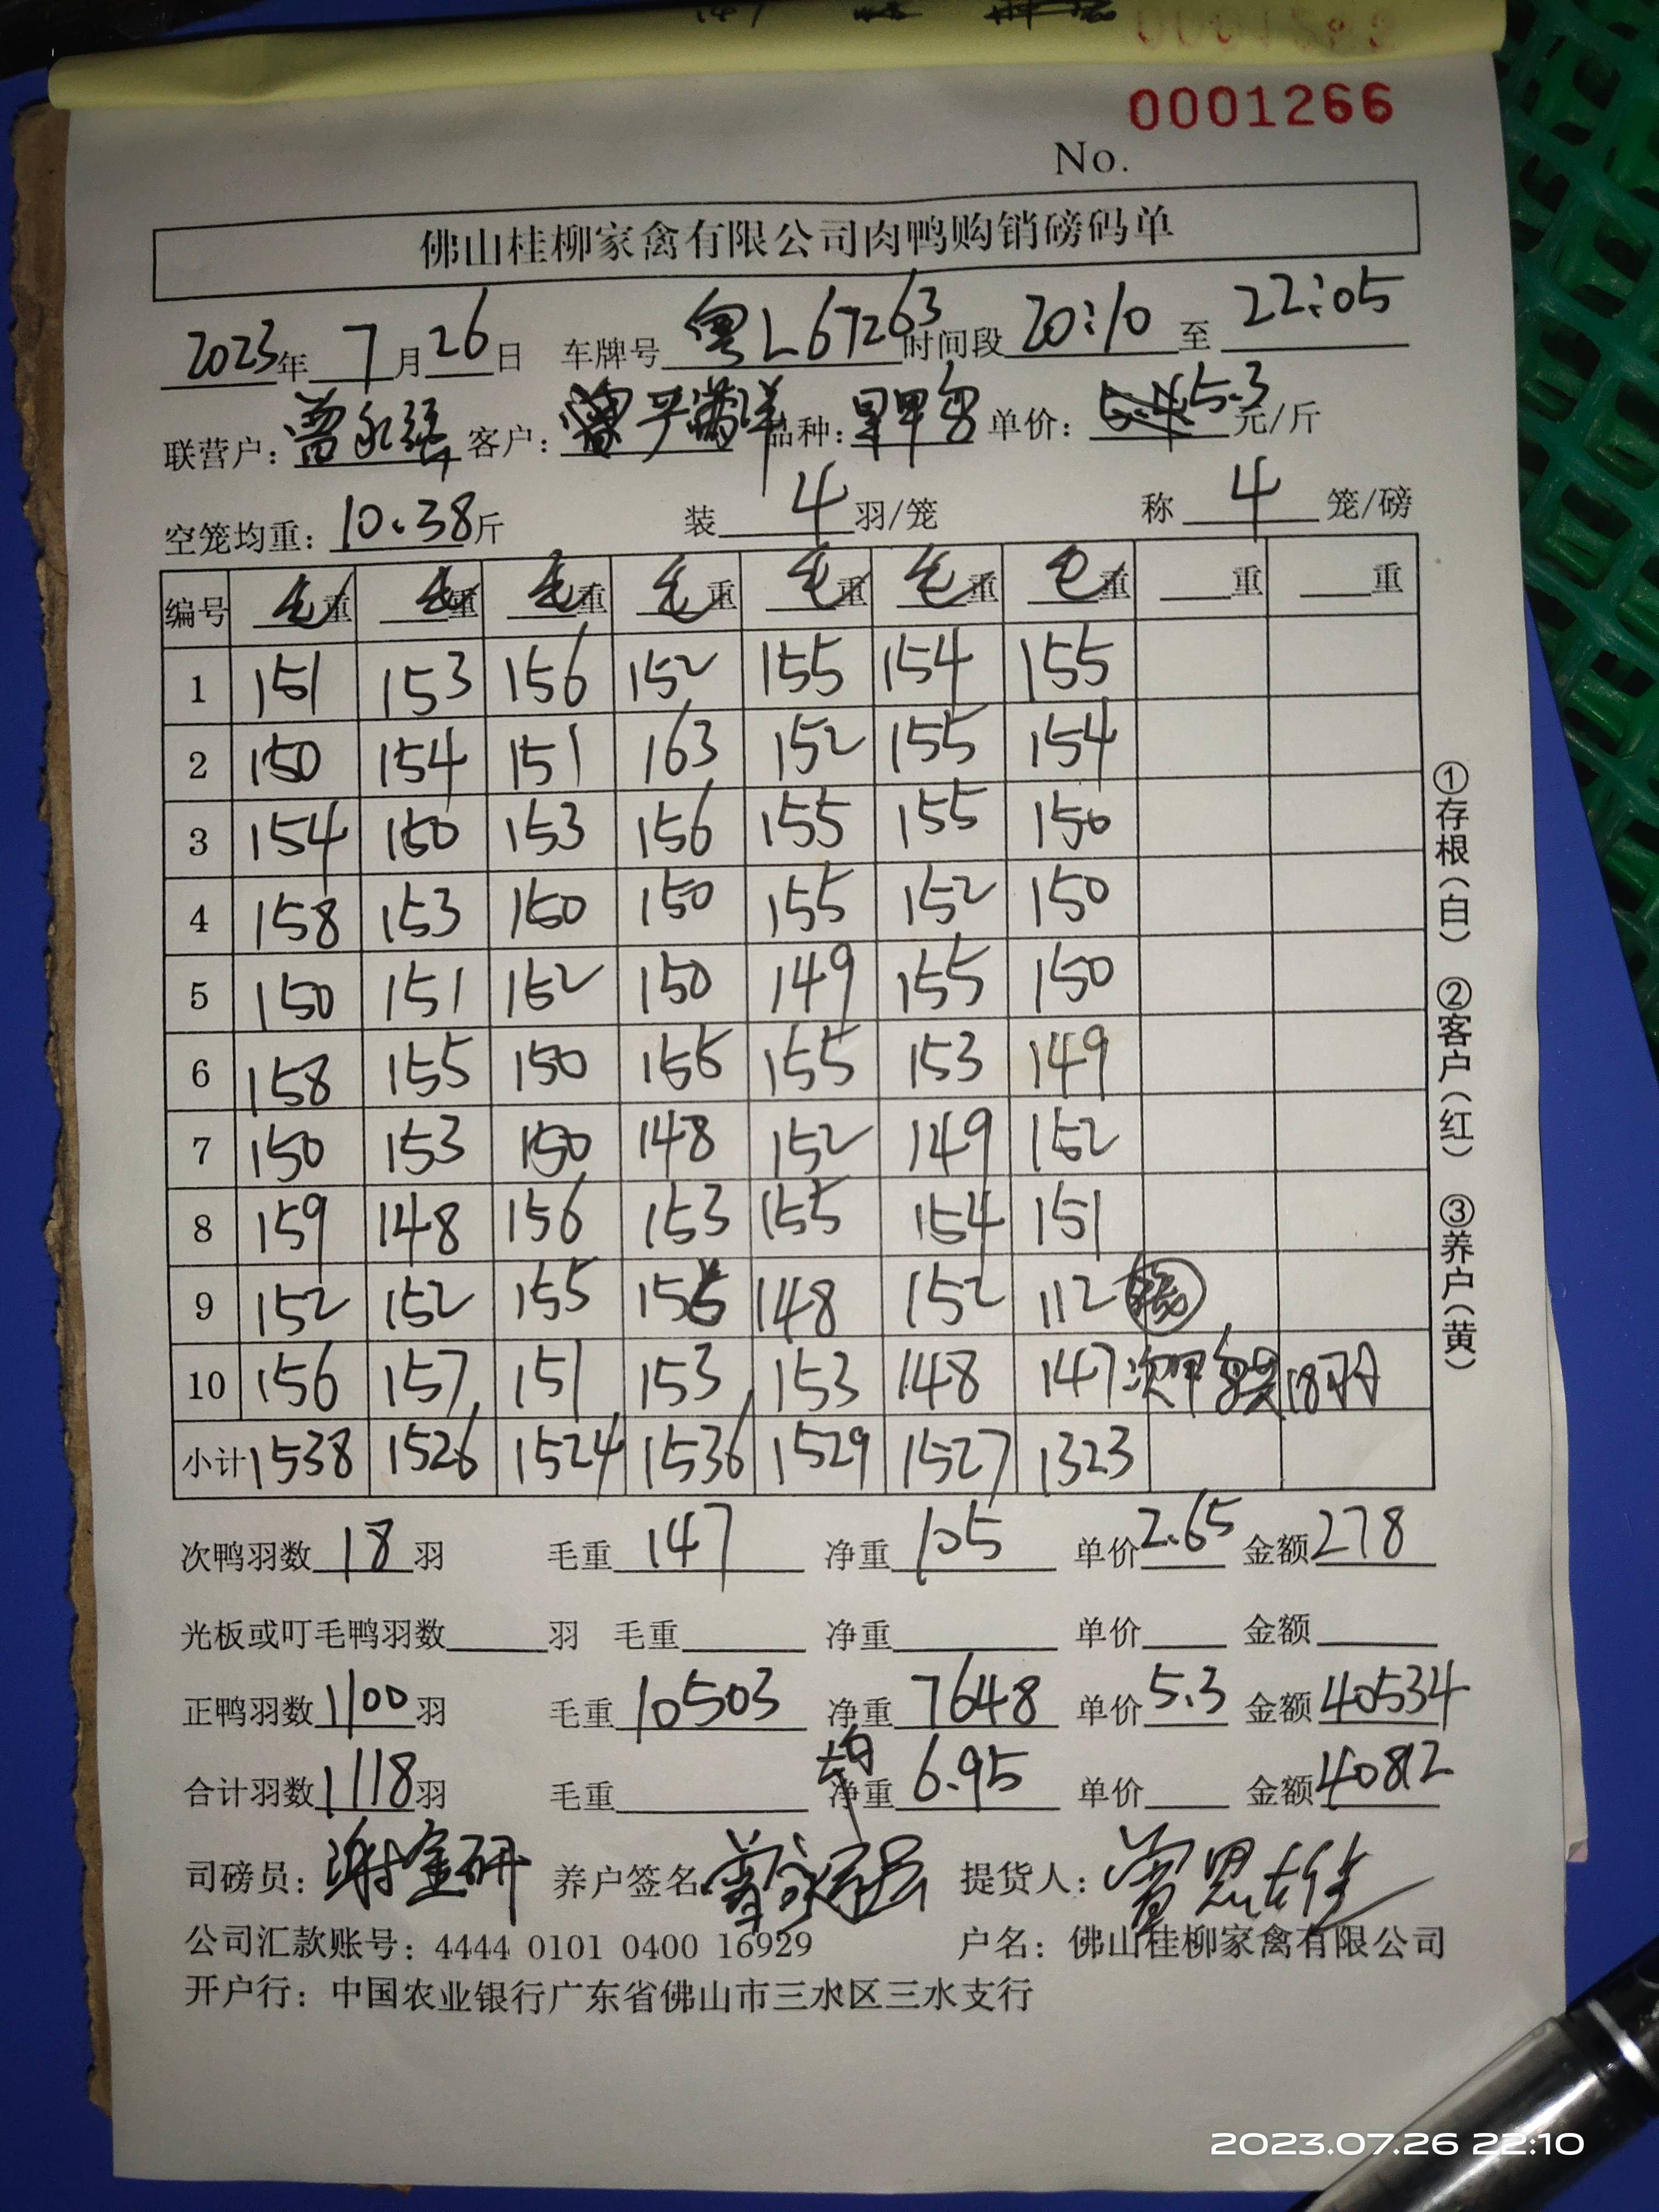 0001266
No.
佛山桂柳家禽有限公司肉鸭购销磅码单
2023年 7月26日 车牌号 粤L67263 时间段 20:10 至 22:05
联营户: 曾永强 客户: 品种: 单价: 5.3 元/斤
空笼均重: 10.38斤 装 4 羽/笼 称 4 笼/磅
编号 毛重 毛重 毛重 毛重 毛重 毛重 毛重 重 重
1 151 153 156 152 155 154 155
2 150 154 151 163 152 155 154
3 154 150 153 156 155 155 150
4 158 153 150 150 155 152 150
5 150 151 152 150 149 155 150
6 158 155 150 155 155 153 149
7 150 153 150 148 152 149 152
8 159 148 156 153 155 154 151
9 152 152 155 156 148 152 112
10 156 157 151 153 153 148 147 18羽
小计 1538 1526 1524 1536 1529 1527 1323
次鸭羽数 18 羽 毛重 147 净重 105 单价 2.65 金额 278
光板或叮毛鸭羽数 羽 毛重 净重 单价 金额
正鸭羽数 1100 羽 毛重 10503 净重 7648 单价 5.3 金额 40534
合计羽数 1118 羽 毛重 均 净重 6.95 单价 金额 40812
司磅员: 养户签名 曾永强 提货人: 曾思雄
公司汇款账号: 4444 0101 0400 16929 户名: 佛山桂柳家禽有限公司
开户行: 中国农业银行广东省佛山市三水区三水支行
①存根(白) ②客户(红) ③养户(黄)
2023.07.26 22:10